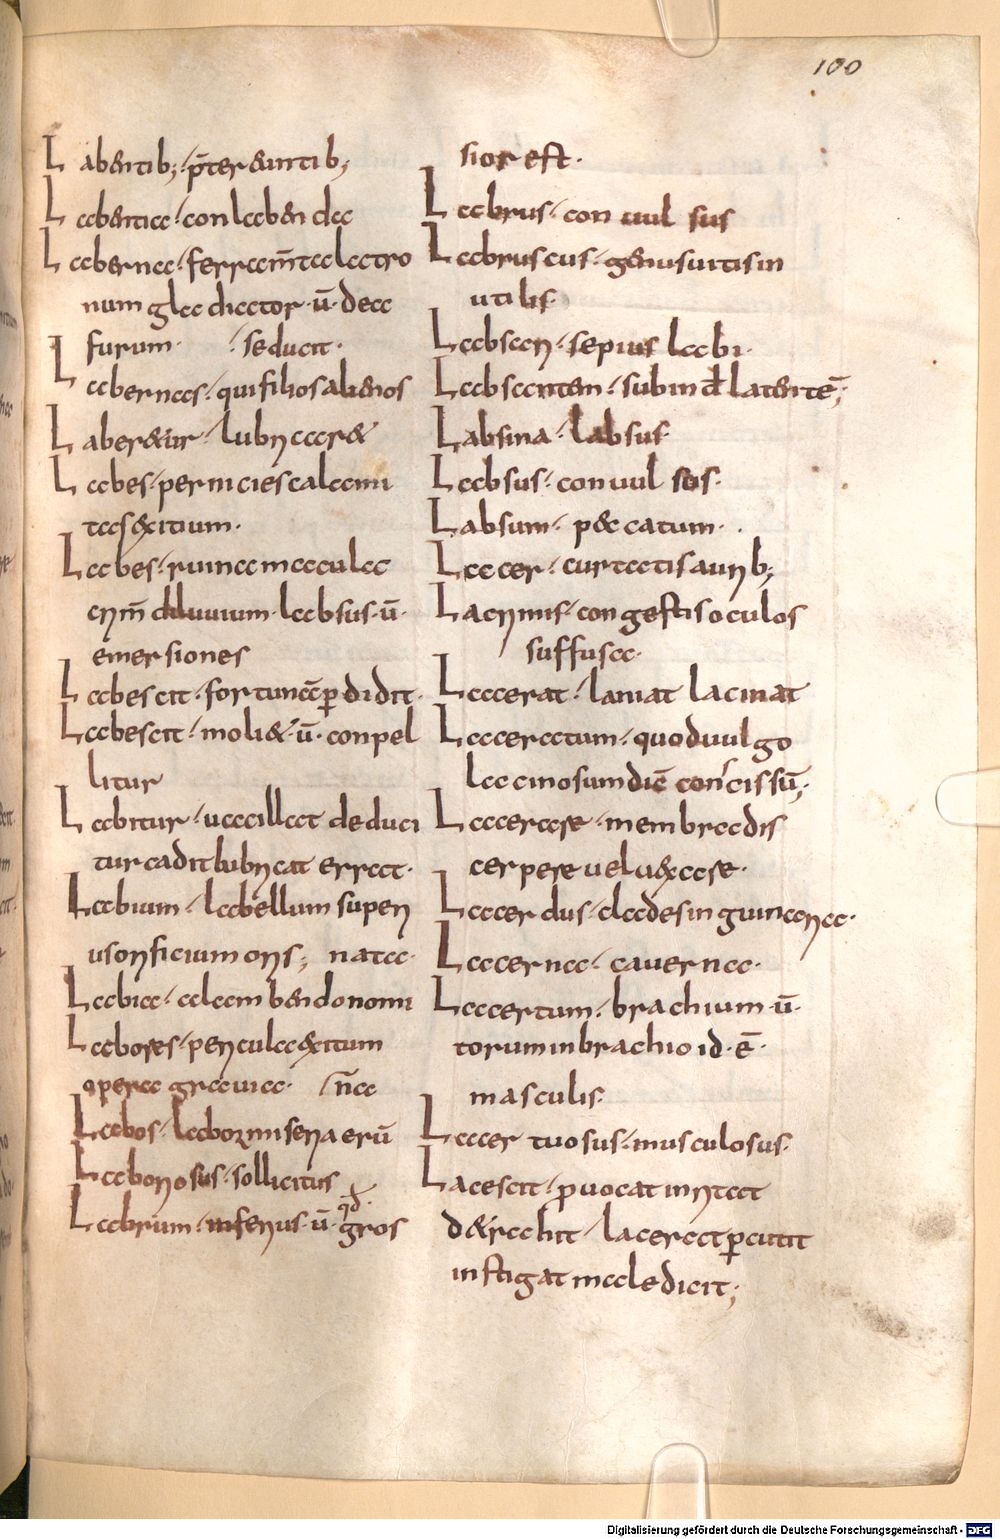 100
Labentib; p̄tereuntib;
Labentia conlabenda
Laberna ferram̄taлectro
num gladiator ū dea
furum seducit
Labernas qui filios alienos
Laberetur lubricaret
Labes pernicies calami
tas exitium
Labes ruina macula
crim̄ diluuium labsus ū
emersiones
Labescit fortunā ꝑdidit
Labescit moliet ū conpel
litur
Labitur uacillat deduci
tur cadit lubricat errat
Labium labellum superi
us orificium oris; nata
Labia calam bendonomi
Labores pericula exitum
opera grauia n̄a
Labos labor miseria erū
Laborosus sollicitus
Labrum inferius ū qd gros
sior est
Labrus conuulsus
Labruscus genus uitis in
utilis
Labscen sepius labi
Labscentem subinđ latentē;
Labsina labsus
Labsus conuulsos
Labsum peccatum
Lacer curtatis aurib;
Lacrimis congestis oculos
suffusa
Lacerat laniat lacinat
Laceratum quod uulgo
lacinosum diē concissū;
Lacerare membra dis
cerpere uel uexare
Lacerdus clades in guinaria
Lacerna cauerna
Lacertum brachium ū
torum in brachio id ē
masculis
Lacertuosus musculosus
Lacescit prouocat inritat
detrahit lacerat ꝑcutit
instigat maledicit;
Digitalisierung gefördert durch die Deutsche Forschungsgemeinschaft - DFG